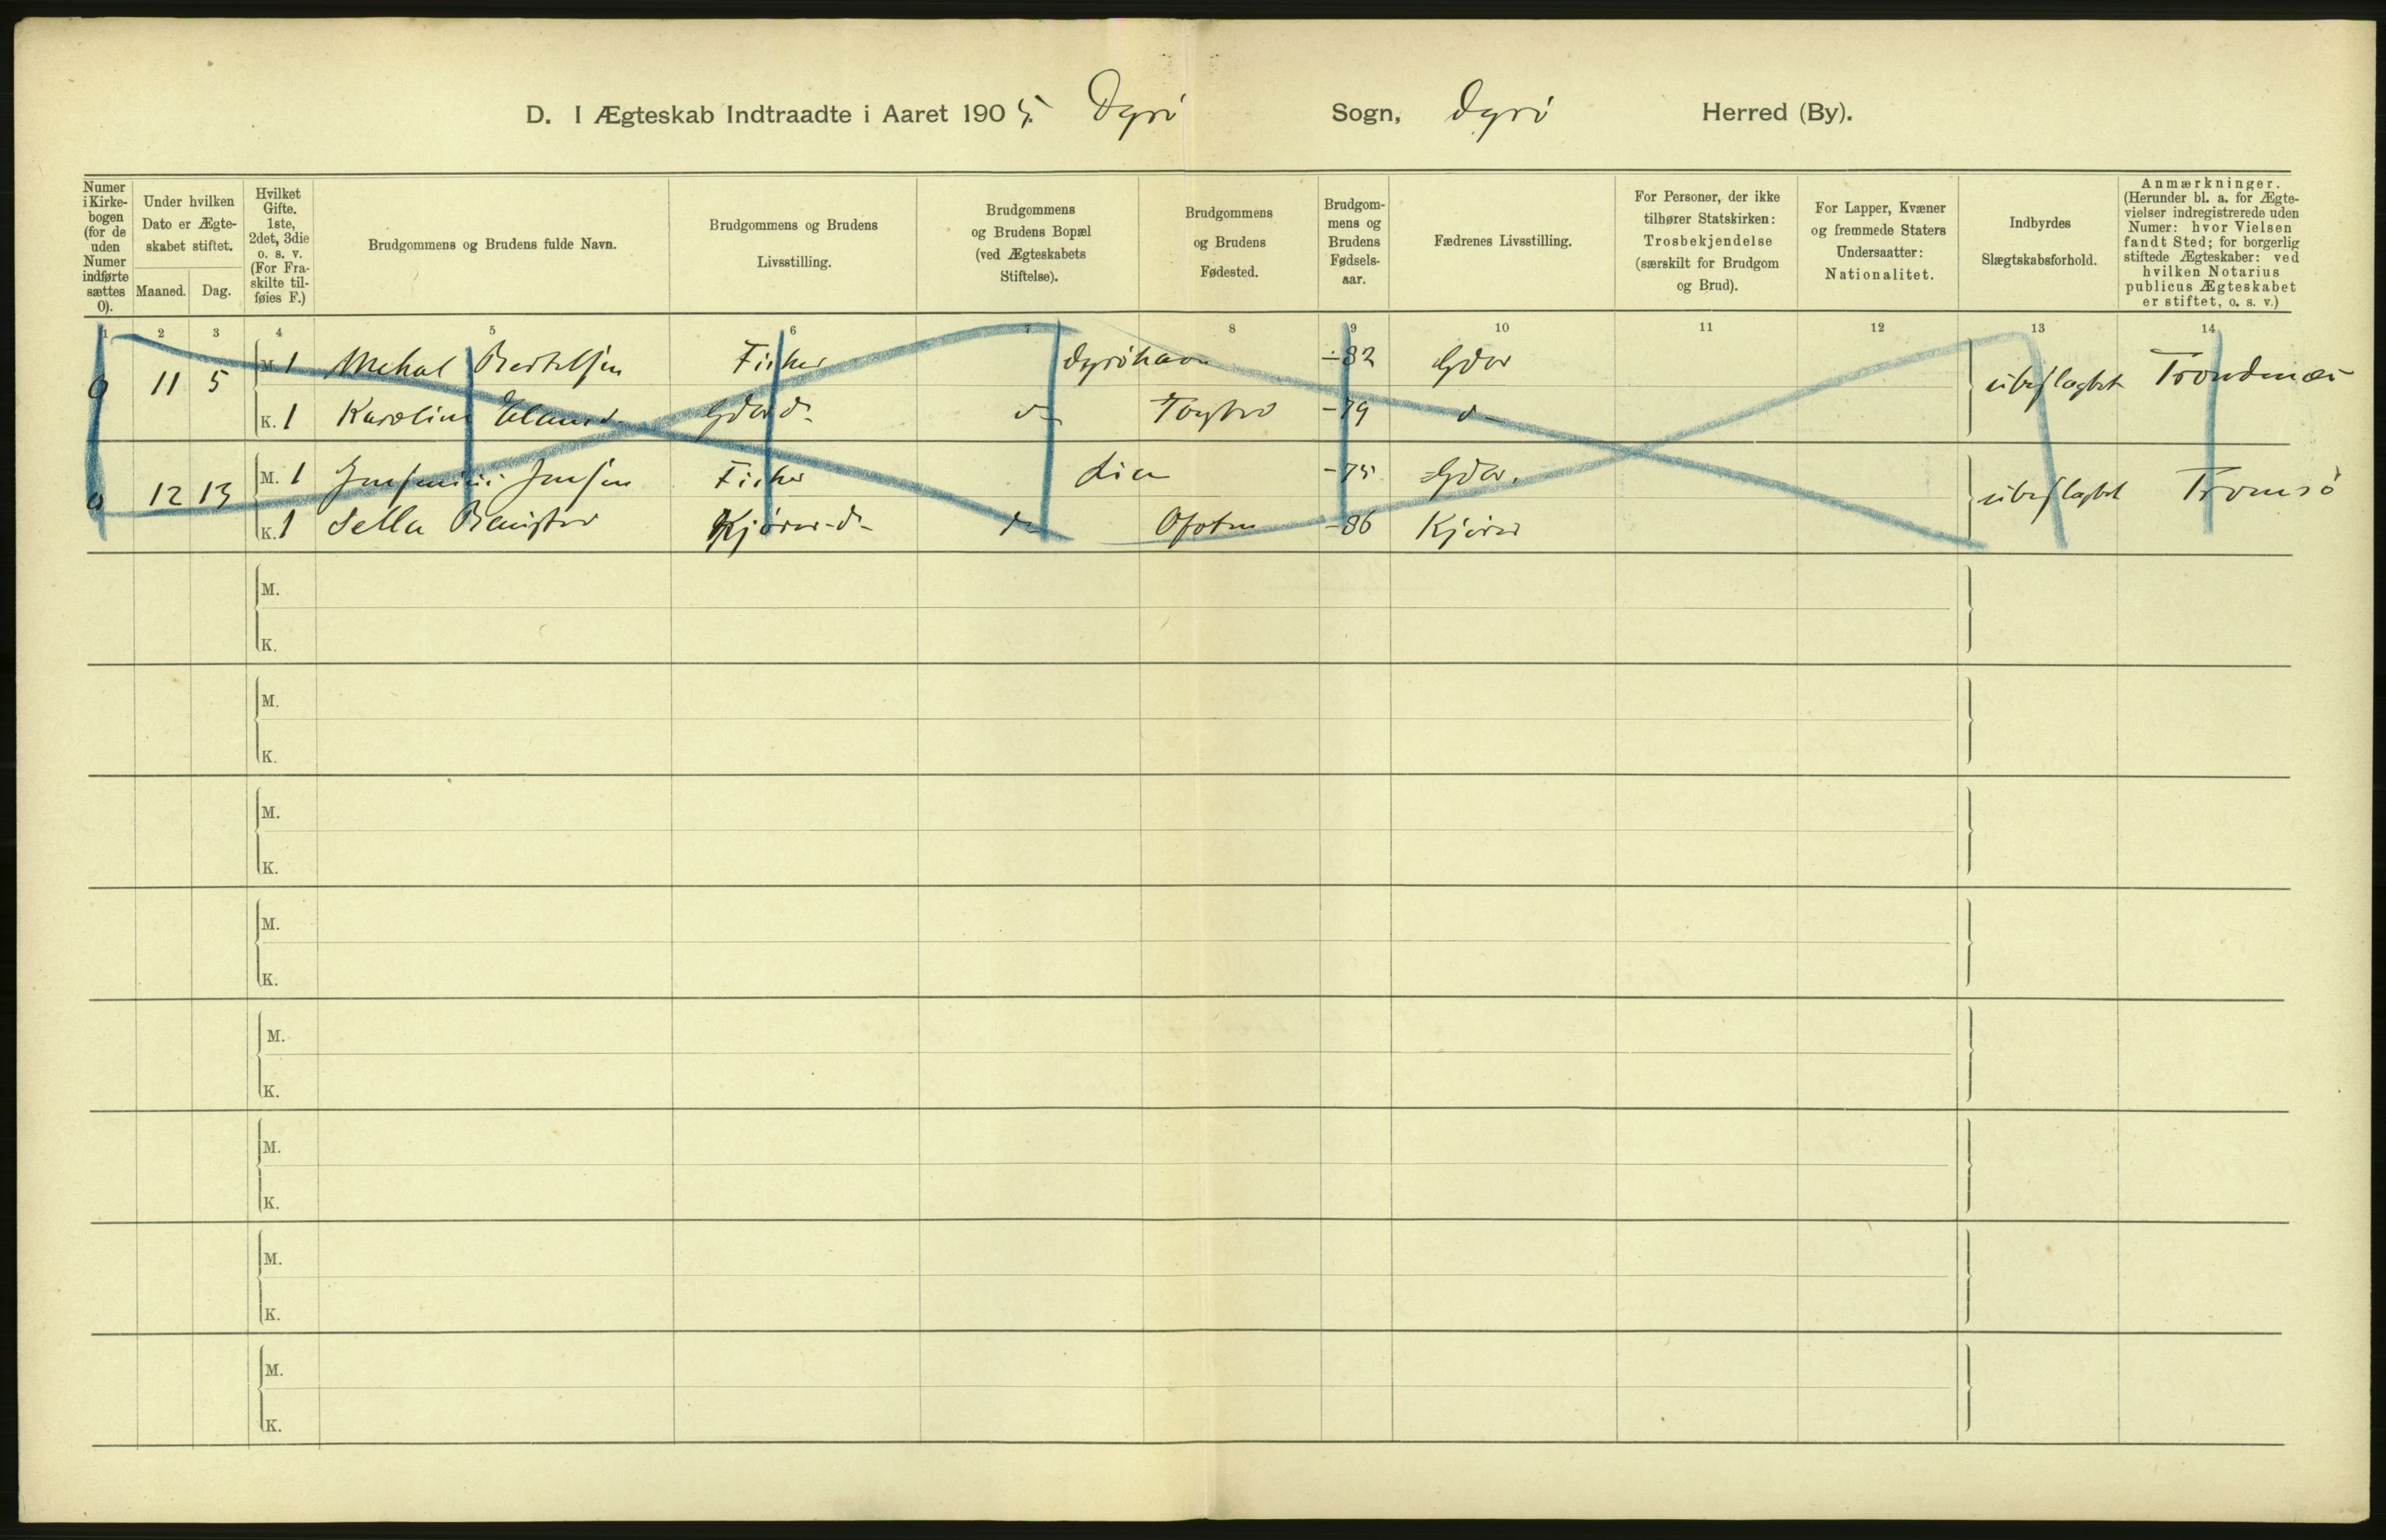 D. I Ægteskab Indtraadte i Aaret 1905. Dyrö Sogn, Dyrö Herred (By).
Numer i Kirkebogen (for de uden Numer indførte sættes 0).
Under hvilken Dato er Ægteskabet stiftet.
Maaned. Dag.
Hvilket Gifte. 1ste, 2det, 3die o. s. v. (For Fraskilte tilføies F.)
Brudgommens og Brudens fulde Navn.
Brudgommens og Brudens Livsstilling.
Brudgommens og Brudens Bopæl (ved Ægteskabets Stiftelse).
Brudgommens og Brudens Fødested.
Brudgommens og Brudens Fødselsaar.
Fædrenes Livsstilling.
For Personer, der ikke tilhører Statskirken: Trosbekjendelse (særskilt for Brudgom og Brud).
For Lapper, Kvæner og fremmede Staters Undersaatter: Nationalitet.
Indbyrdes Slægtskabsforhold.
Anmærkninger. (Herunder bl. a. for Ægtevielser indregistrerede uden Numer: hvor Vielsen fandt Sted; for borgerlig stiftede Ægteskaber: ved hvilken Notarius publicus Ægteskabet er stiftet, o. s. v.)
1 2 3 4 5 6 7 8 9 10 11 12 13 14
0 11 5 M. 1 Mekal Bertelsen Fisker Dyröhavn -82 Gdbr ubeslagtet Trondenæs
K. 1 Karoline Gdbr d. d- -79 d-
0 12 13 M. 1 Jensen Fisker Lien -75 Gdbr. ubeslagtet Tromsö
K. 1 Sella Kjörer-d- d- Ofoten -86 Kjörer
M.
K.
M.
K.
M.
K.
M.
K.
M.
K.
M.
K.
M.
K.
M.
K.